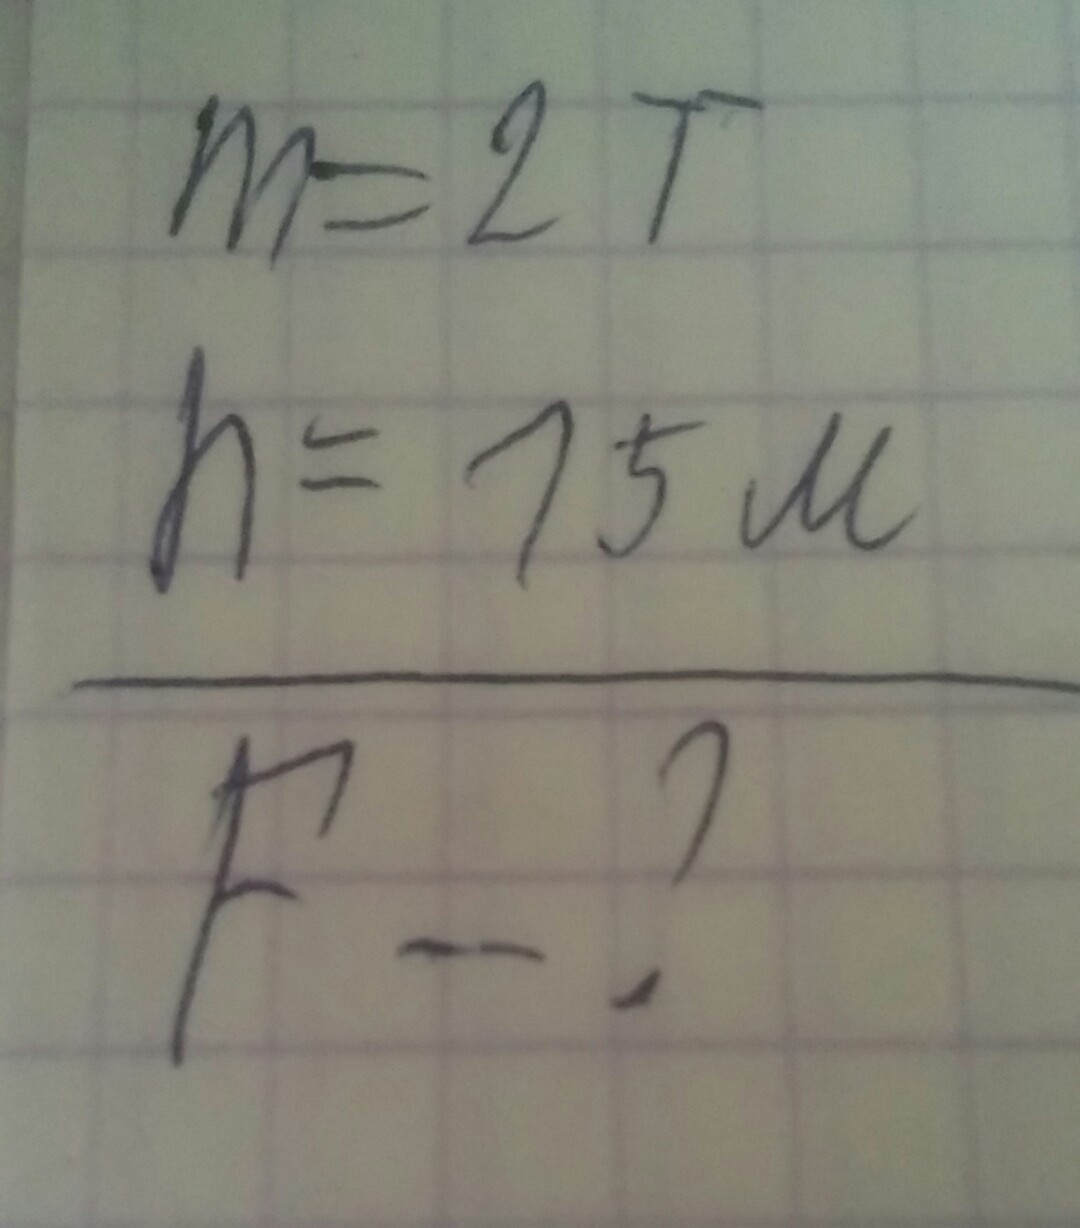 m=2 т
h=15 м
F-?